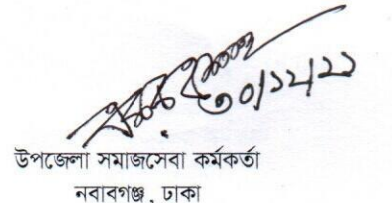 ৩০/১২/২১
উপজেলা সমাজসেবা কর্মকর্তা
নবাবগঞ্জ, ঢাকা